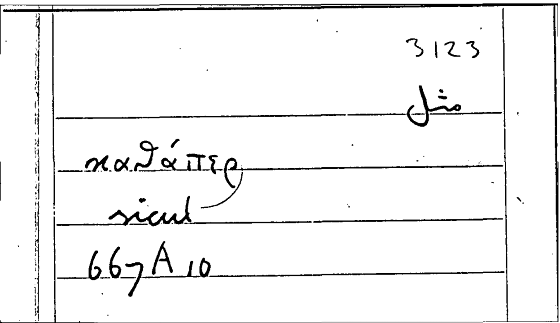 3123
مثل
καθάπερ
sicut
667A10